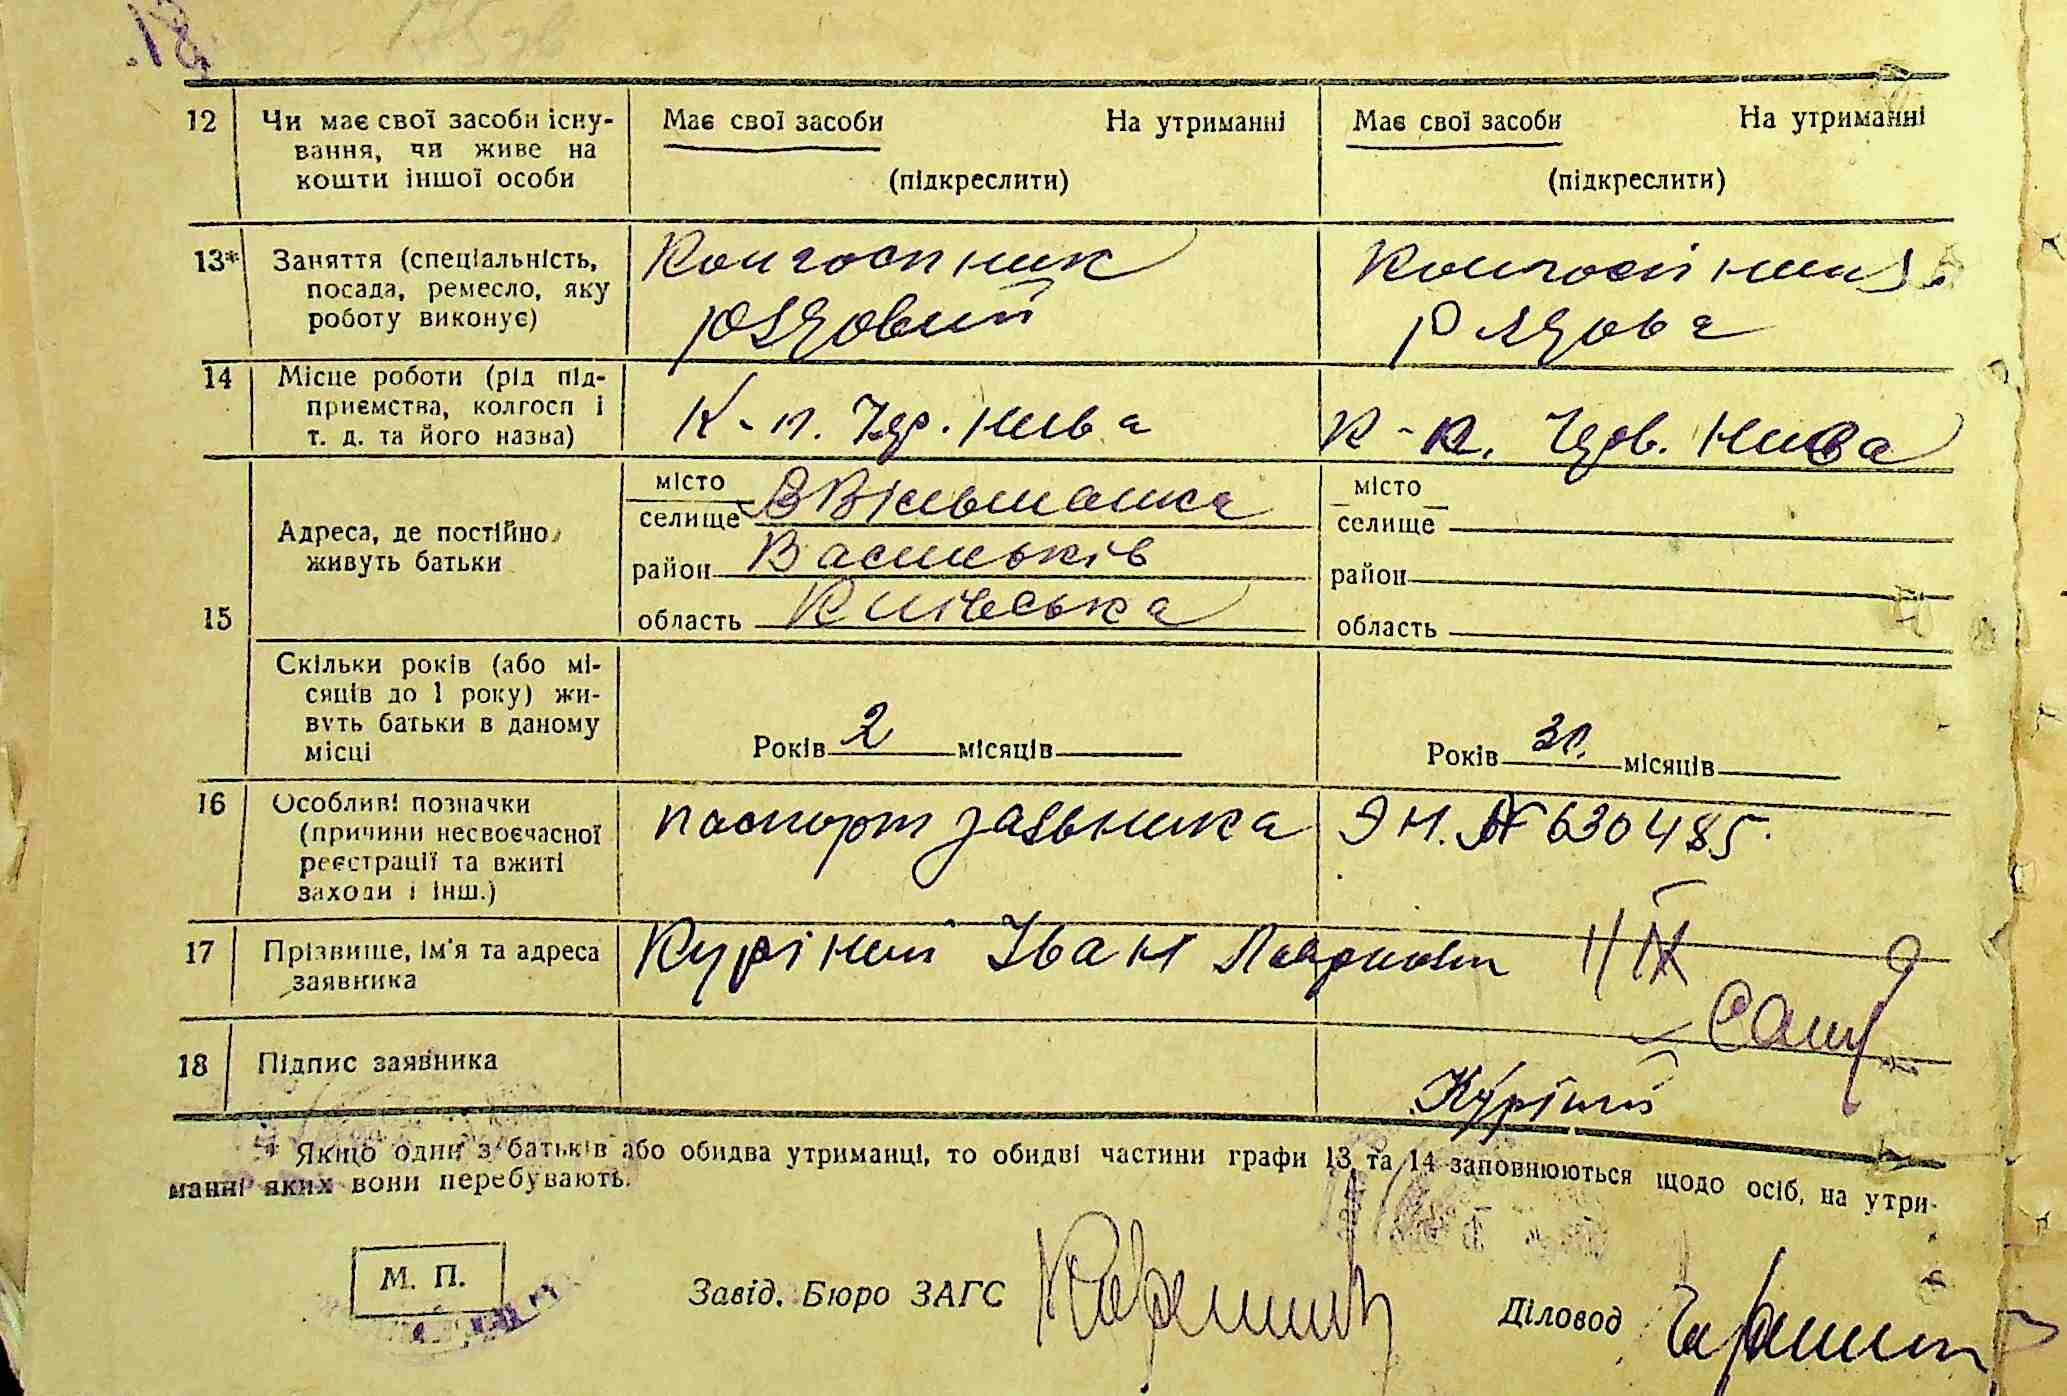 12 Чи має свої засоби існу- Має свої засоби На утриманні Має свої засоби На утриманні
вання, чи живе на
кошти іншої особи (підкреслити) (підкреслити)
13* Заняття (спеціальність, Колгоспник Колгоспниця
посада, ремесло, яку
роботу виконує) рядовий рядова
14 Місце роботи (рід під-
приємства, колгосп і К-п. Чер. Нива К-п. Черв. Нива
т. д. та його назва)
місто місто
селище Вільшанка селище
15 Адреса, де постійно
живуть батьки
район Васильків район
область Київська область
Скільки років (або мі-
сяців до 1 року) жи-
вуть батьки в даному Років 2 місяців Років 31. місяців
місці
16 Особливі позначки паспорт заявника ЭН. № 630485.
(причини несвоєчасної
реєстрації та вжиті
заходи і інш.)
17 Прізвище, ім'я та адреса Куріний Іван
заявника
18 Підпис заявника Куріний
* Якщо один з батьків або обидва утриманці, то обидві частини графи 13 та 14 заповнюються щодо осіб, на утри-
манні яких вони перебувають.
М. П. Завід. Бюро ЗАГС Діловод